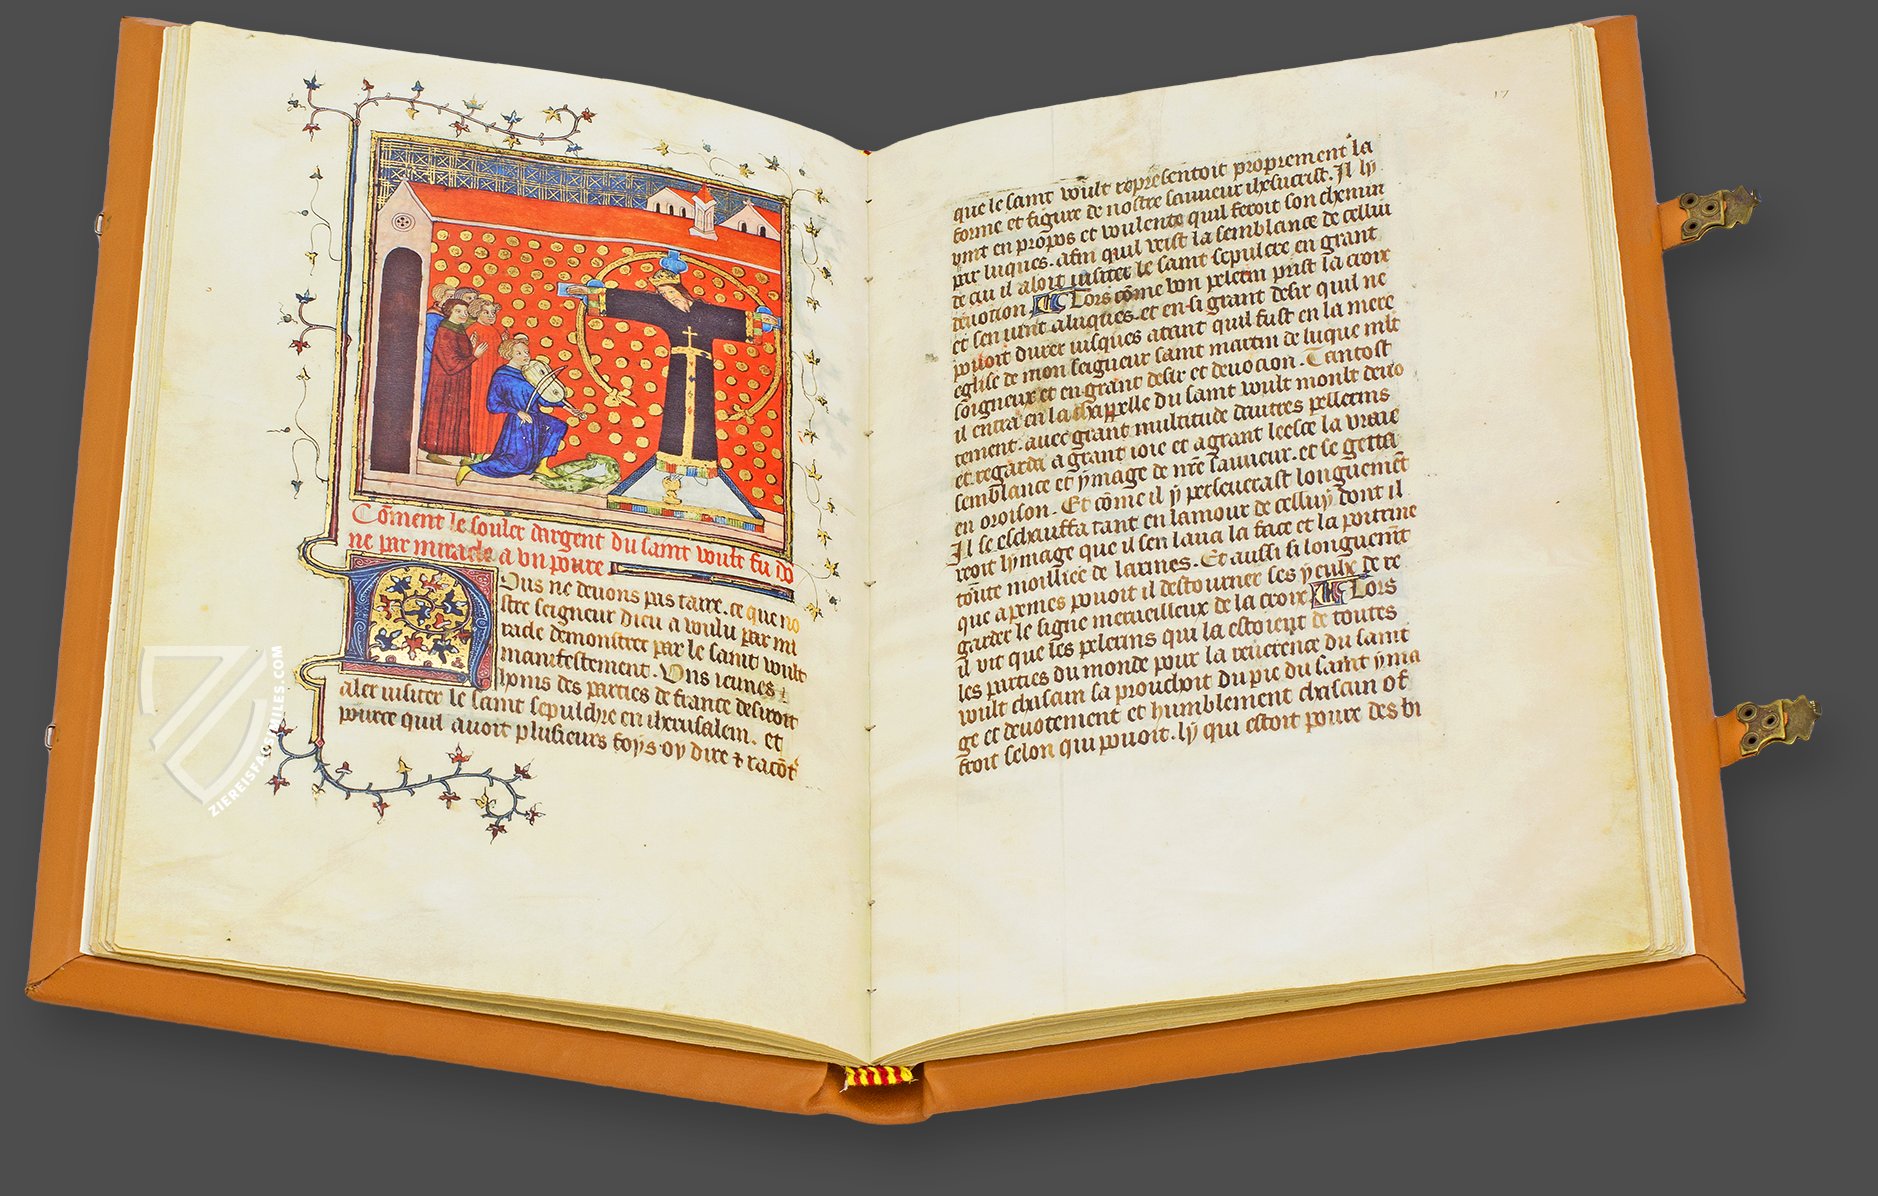 Cõment le souler dargent du saint voult fu do
ne par miracle a vn poure
Nous ne deuons pas taire. ce que no
stre seigneur dieu a voulu par mi
racle demonstrer par le saint voult
manifestement. Vns ieunes
homs des parties de france desiroit
aler uisiter le saint sepulchre en iherusalem. et
pource quil auoit plusieurs foys oy dire ⁊ racõt
17
que le saint voult representoit proprement la
forme et figure de nostre sauueur ihesucrist. Il ly
vint en propos et voulente quil feroit son chemin
par luques. afin quil veist la semblance de cellui
de cui il aloit uisiter le saint sepulcre en grant
deuotion. Lors cõme bon pelerin prist la croix
et sen uient a luques. et en si grant desir quil ne
pouoit durer iusques atant quil fust en la mere
eglise de mon seigneur saint martin de luque mlt
soigneux et en grant desir et deuocion. Tantost
il entra en la chappelle du saint voult moult deuo
tement. auec grant multitude dautres pellerins
et regarda a grant ioie et a grant leesce la vraie
semblance et ymage de nr̃e sauueur. et se getta
en oroison. Et cõme il y perseuerast longuemẽt
Il se eschauffa tant en lamour de celluy dont il
veoit lymage que il sen laua la face et la poitrine
toute moilliee de larmes. Et aussi si longuemẽt
que apeines pouoit il destourner ses yeulx de re
garder le signe merueilleux de la croix Lors
il vit que les pelerins qui la estoient de toutes
les parties du monde pour la reuerence du saint
voult chascun sa prouchoit du pie du saint yma
ge et deuotement et humblement chascun of
froit selon qui pouoit. ly qui estoit poure des bi
ZIEREISFACSIMILES.COM